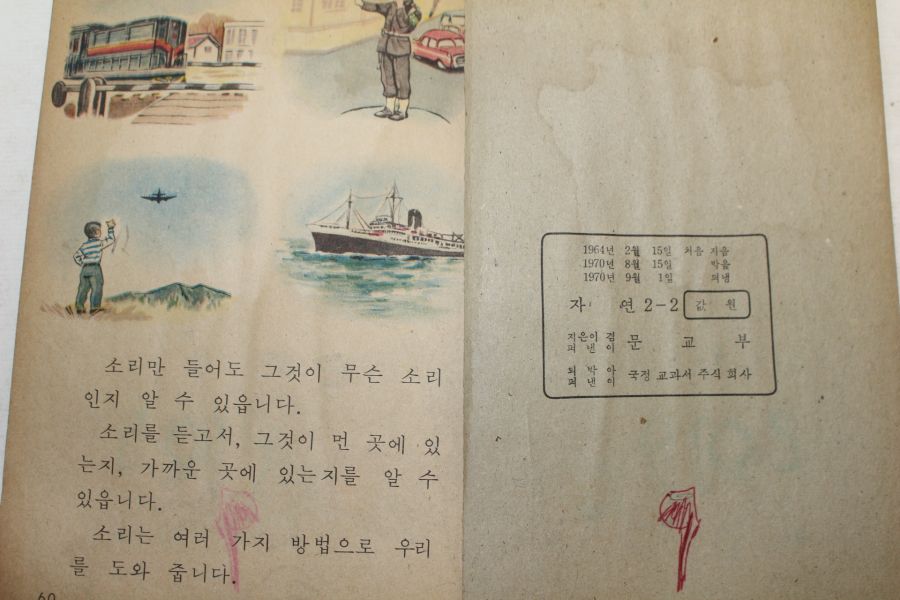 소리만 들어도 그것이 무슨 소리
인지 알 수 있읍니다.
소리를 듣고서, 그것이 먼 곳에 있
는지, 가까운 곳에 있는지를 알 수
있읍니다.
소리는 여러 가지 방법으로 우리
를 도와 줍니다.
60
1964년 2월 15일 처음 지음
1970년 8월 15일 박음
1970년 9월 1일 펴냄
자 연 2-2 값 원
지은이 겸
펴 낸 이 문 교 부
되 박 아
펴 낸 이 국정 교과서 주식 회사